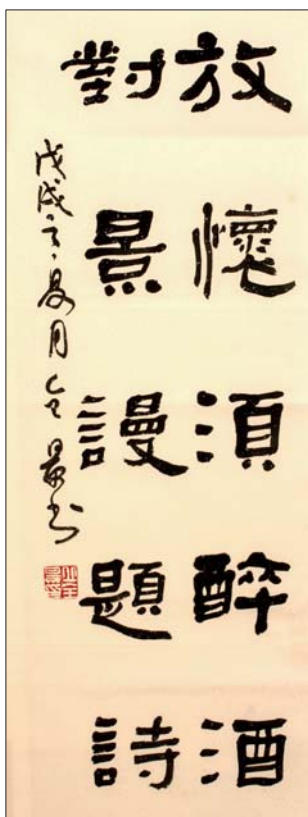 放懷湏醉酒
對景謾題詩
戊戌之夏月